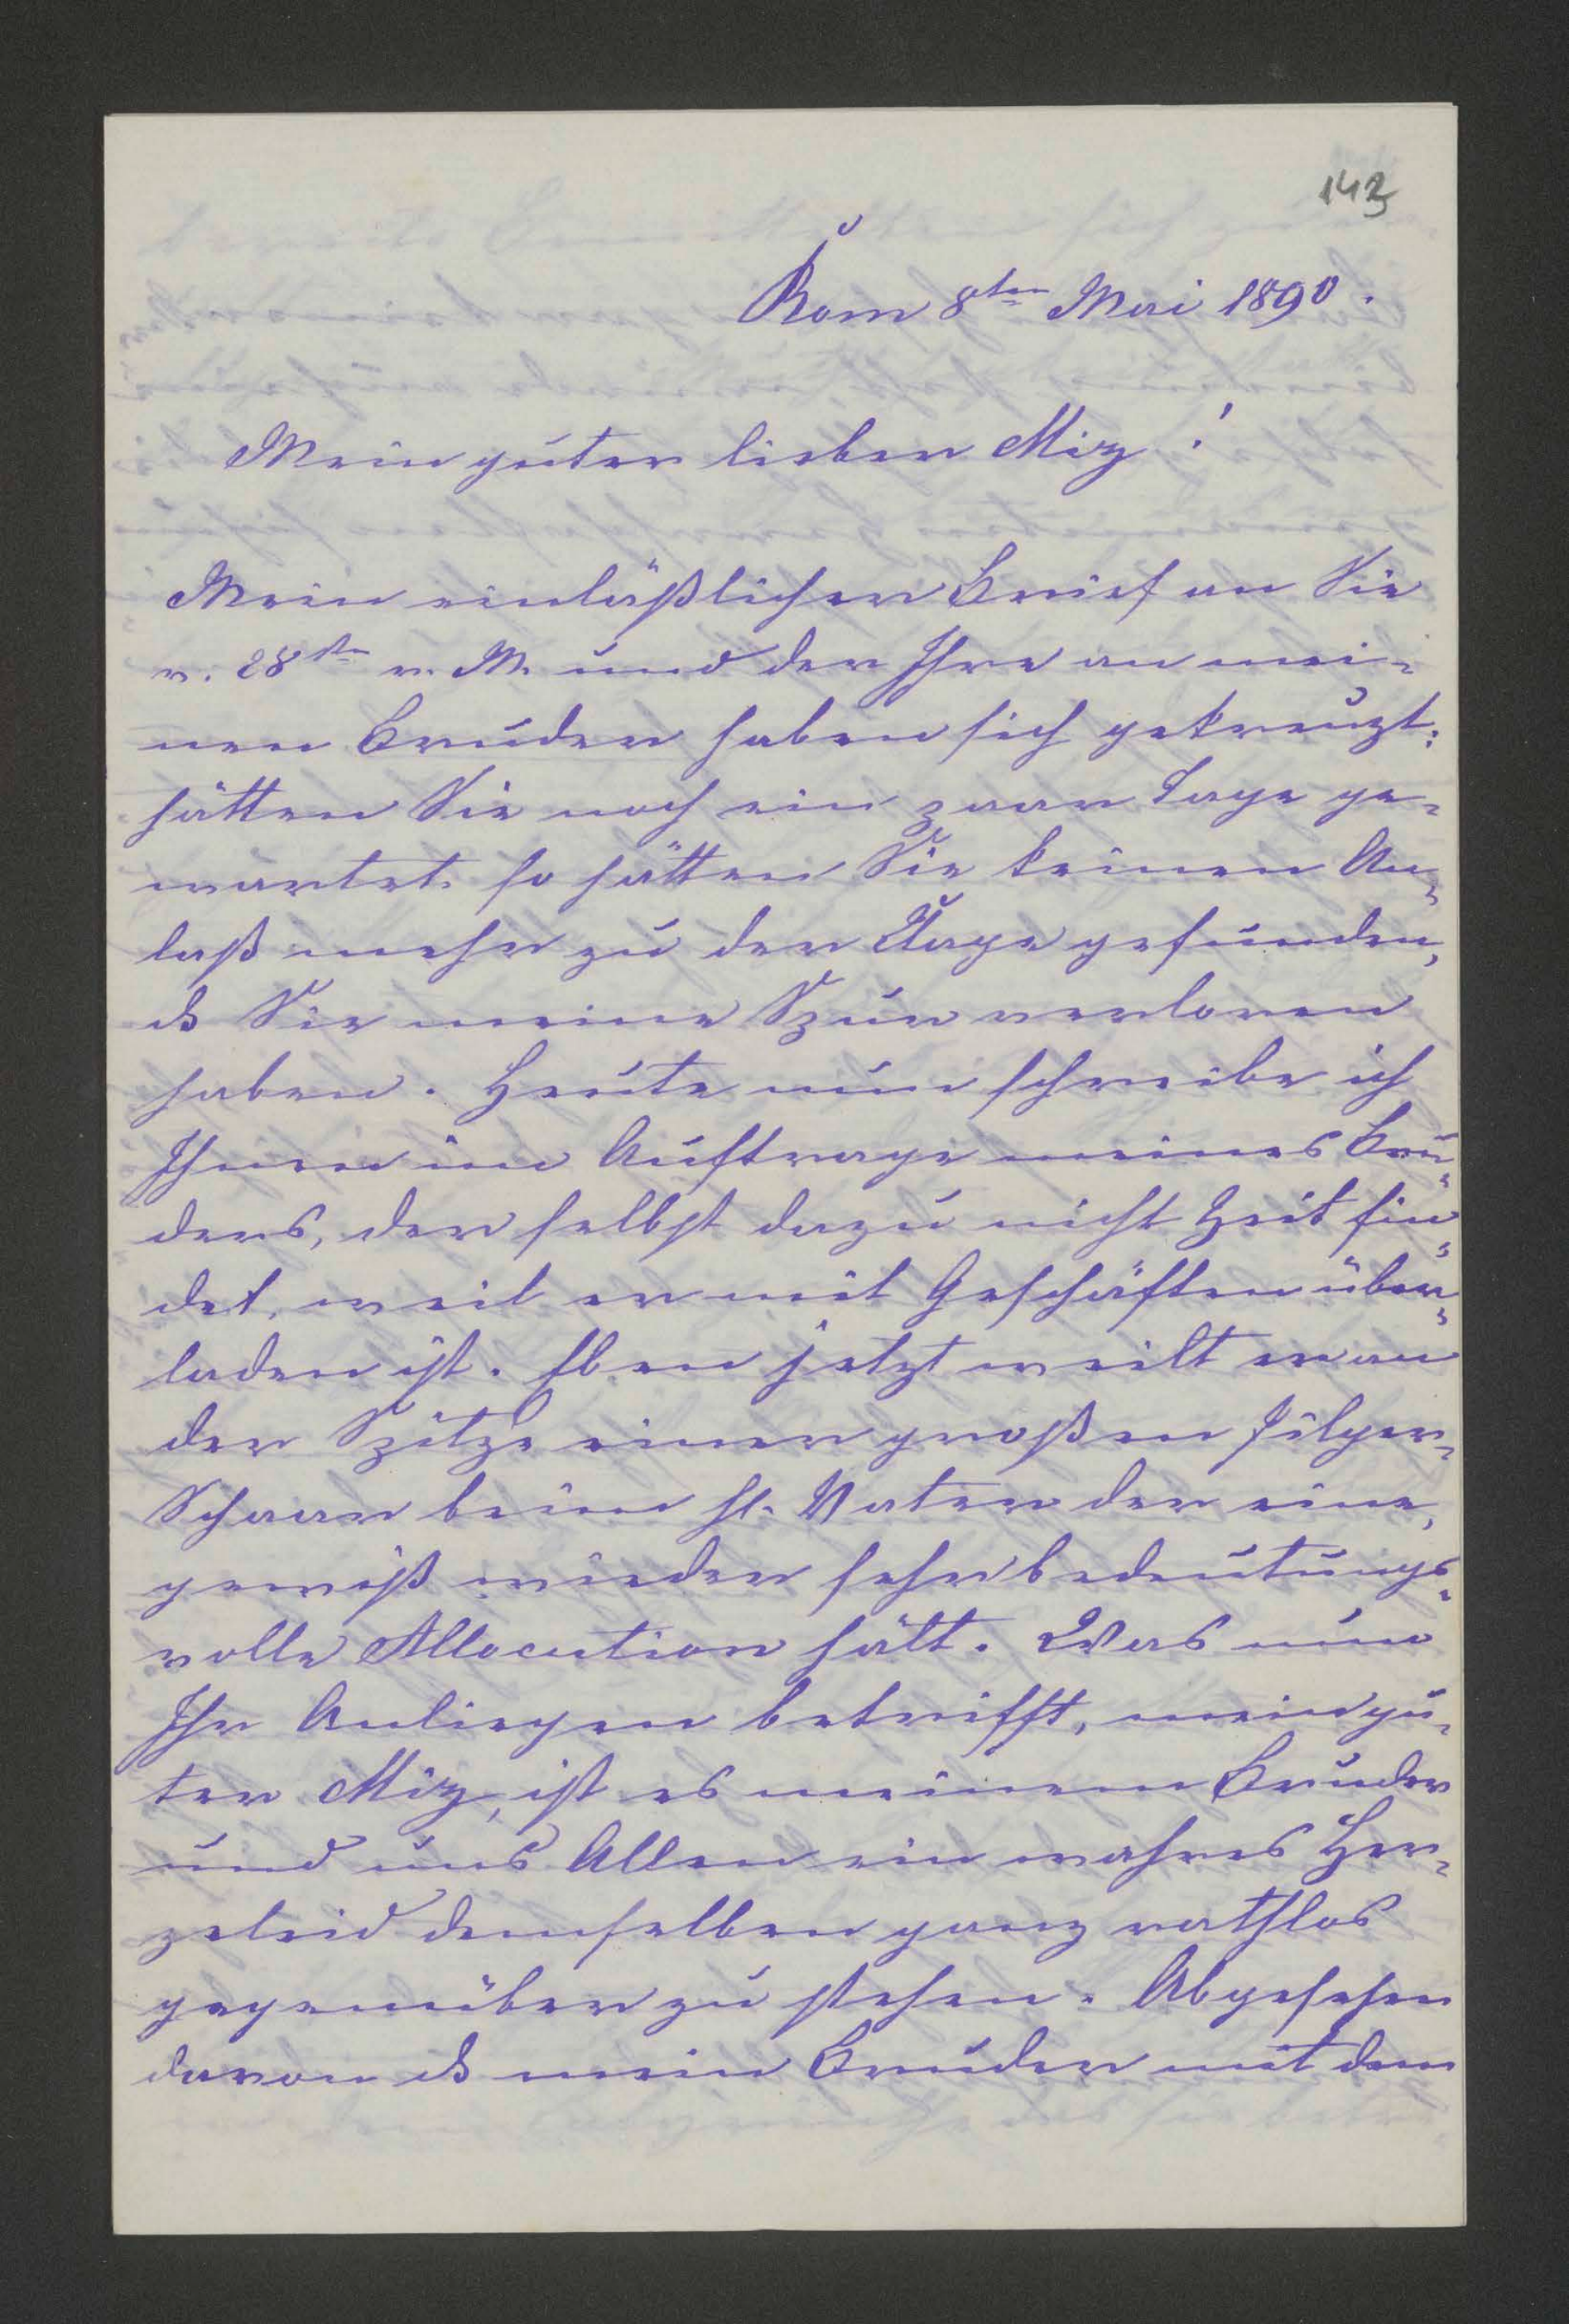 143
Rom 8ten Mai 1890.
Mein guter lieber Miz!
Mein einläßlicher Brief an Sie
v. 28ten v. M. und der Ihre an mei-
nen Bruder haben sich gekreuzt;
hätten Sie noch ein paar Tage ge-
wartet, so hätten Sie keinen An-
laß mehr zu der Klage gefunden,
ds Sie meine Spur verloren
haben. Heute nun schreibe ich
Ihnen im Auftrage meines Bru-
ders, der selbst dazu nicht Zeit fin-
det, weil er mit Geschäften über-
laden ist. Eben jetzt weilt er an
der Spitze einer großen Pilger-
Schaar beim hl. Vater der eine,
gewiß wieder sehr bedeutungs-
volle Allocution hält. Was nun
Ihr Anliegen betrifft, mein gu-
ter Miz, ist es meinem Bruder
und uns Allen ein wahres Her-
zeleid demselben ganz rathlos
gegenüber zu stehen. Abgesehen
davon ds mein Bruder mit dem